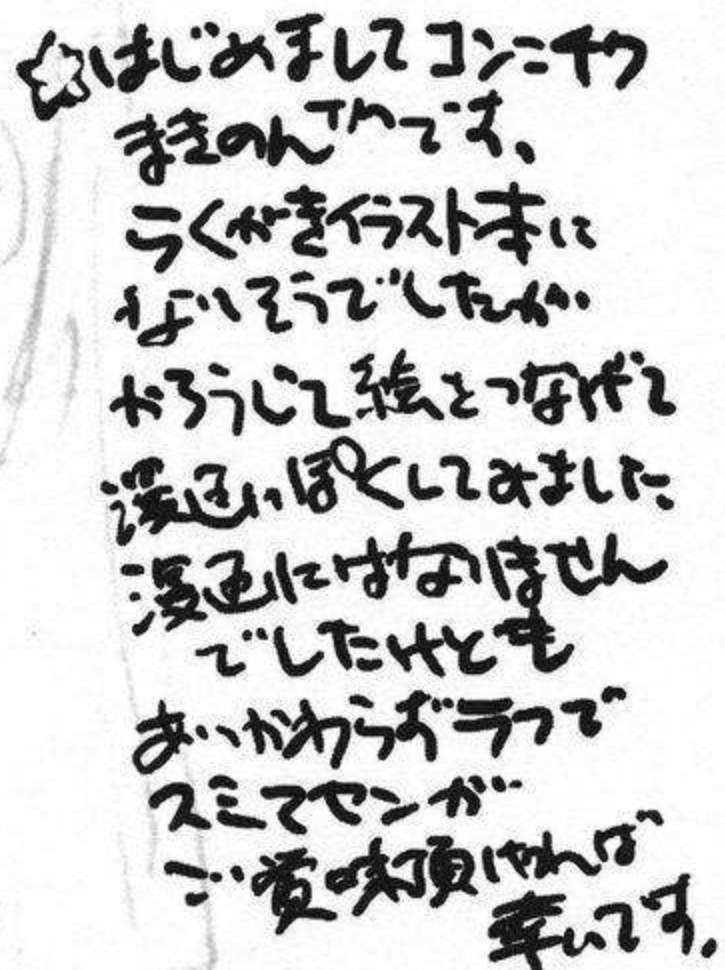 ☆はじめましてコンニチワ
まきのんTMです、
らくがきイラスト本に
ないそうでしたが
かろうじて絵をつなげて
漫画っぽくしてみました
漫画にはなりません
でしたけども
あいかわらずラフで
スミマセンが
ご賞味頂ければ
幸いです.